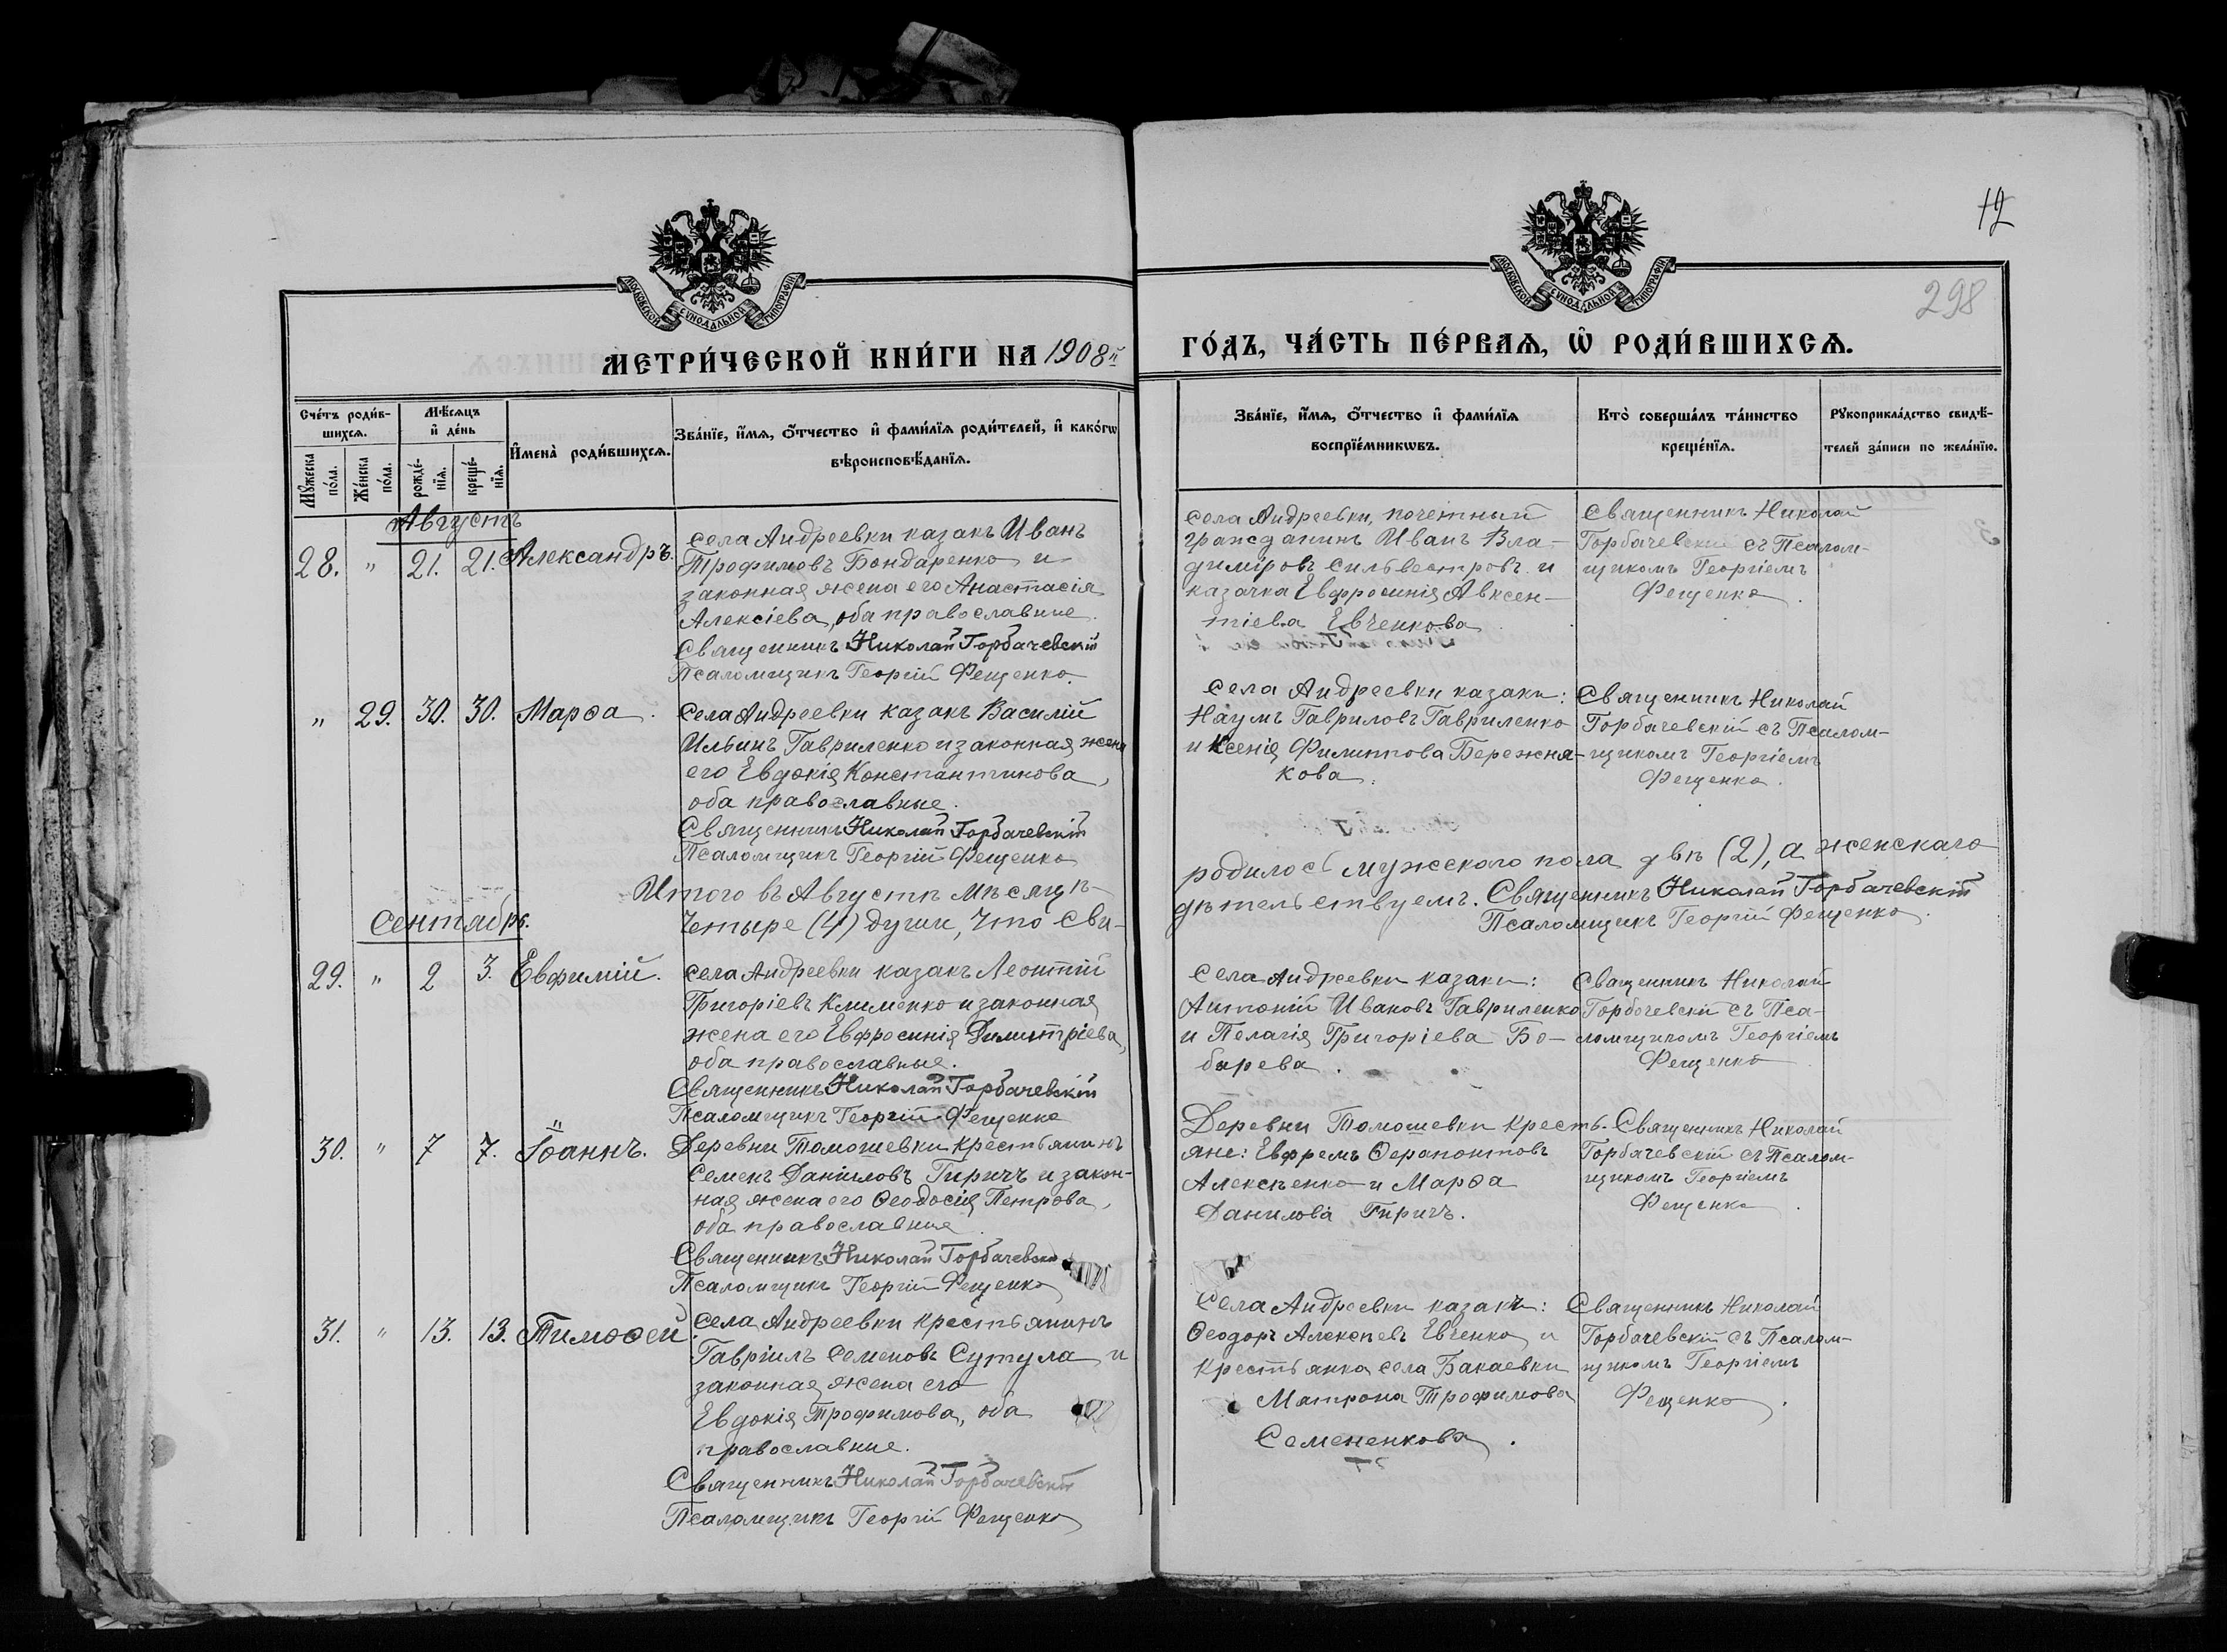 12
298
МОСКОВСКОЙ СѴНОДАЛЬНОЙ ТИПОГРАФІИ
МОСКОВСКОЙ СѴНОДАЛЬНОЙ ТИПОГРАФІИ
МЕТРИ́ЧЕСКОЙ КНИ́ГИ НА 1908й
ГО́ДЪ, ЧА́СТЬ ПЕ́РВАЯ, Ѡ҆ РОДИ́ВШИХСЯ.
Сче́тъ роди́в-
шихся.
Мѣ́сяцъ
и҆ де́нь
Мꙋ́жеска
по́ла.
Же́нска
по́ла.
рожде́-
нїя.
креще́-
нїя.
И҆мена̀ роди́вшихся.
Зва́нїе, и҆́мя, ѻ҆́тчество и҆ фами́лїя роди́телей, и҆ како́гѡ
вѣроисповѣ́данїя.
Зва́нїе, и҆́мя, ѻ҆́тчество и҆ фами́лїя
воспрїе́мникѡвъ.
Кто̀ соверша́лъ та́инство
креще́нїя.
Рꙋкоприкла́дство свидѣ́-
телей за́писи по жела́нїю.
Августъ
28. " 21. 21. Александръ.
села Андреевки казакъ Иванъ
Трофимовъ Бондаренко и
законная жена его Анастасія
Алексіева, оба православные.
Священникъ Николай Горбачевскій
Псаломщикъ Георгій Фещенко.
села Андреевки, почетный
гражданинъ Иванъ Вла-
диміровъ Сильвестровъ и
казачка Евфросинія Авксен-
тіева Евченкова
Священникъ Николай
Горбачевскій съ Псалом-
щикомъ Георгіемъ
Фещенко.
" 29. 30. 30. Марѳа.
Села Андреевки казакъ Василій
Ильинъ Гавриленко и законная жена
его Евдокія Константинова,
оба православные.
Священникъ Николай Горбачевскій
Псаломщикъ Георгій Фещенко
Села Андреевки казаки:
Наумъ Гавриловъ Гавриленко
и Ксенія Филиппова Бережня-
кова.
Священникъ Николай
Горбачевскій съ Псалом-
щикомъ Георгіемъ
Фещенко.
Итого въ Августѣ мѣсяцѣ
родилось мужескаго пола двѣ (2), а женскаго
четыре (4) души, что сви-
дѣтельствуемъ. Священникъ Николай Горбачевскій
Псаломщикъ Георгій Фещенко.
Сентябрь.
29. " 2 3. Евфимій.
села Андреевки казакъ Леонтій
Григоріевъ Клименко и законная
жена его Евфросинія Димитріева,
оба православные.
Священникъ Николай Горбачевскій
Псаломщикъ Георгій Фещенко
Села Андреевки казаки:
Антоній Ивановъ Гавриленко
и Пелагія Григоріева Бо-
бырева.
Священникъ Николай
Горбачевскій съ Пса-
ломщикомъ Георгіемъ
Фещенко
30. " 7 7. Іоаннъ.
Деревни Томошевки крестьянинъ
Семенъ Даніиловъ Гиричъ и закон-
ная жена его Ѳеодосія Петрова,
оба православные
Священникъ Николай Горбачевскій
Псаломщикъ Георгій Фещенко
Деревни Томошевки кресть-
яне: Ефремъ Ѳерапонтовъ
Алексѣенко и Марѳа
Данилова Гиричъ.
Священникъ Николай
Горбачевскій съ Псалом-
щикомъ Георгіемъ
Фещенко.
31. " 13. 13. Тимоѳей
Села Андреевки крестьянинъ
Гавріилъ Семеновъ Сутула и
законная жена его
Евдокія Трофимова, оба
православные.
Священникъ Николай Горбачевскій
Псаломщикъ Георгій Фещенко
Села Андреевки казакъ:
Ѳеодоръ Алексѣевъ Евченко и
крестьянка села Бакаевки
Матрона Трофимова
Семененкова.
Священникъ Николай
Горбачевскій съ Псалом-
щикомъ Георгіемъ
Фещенко.